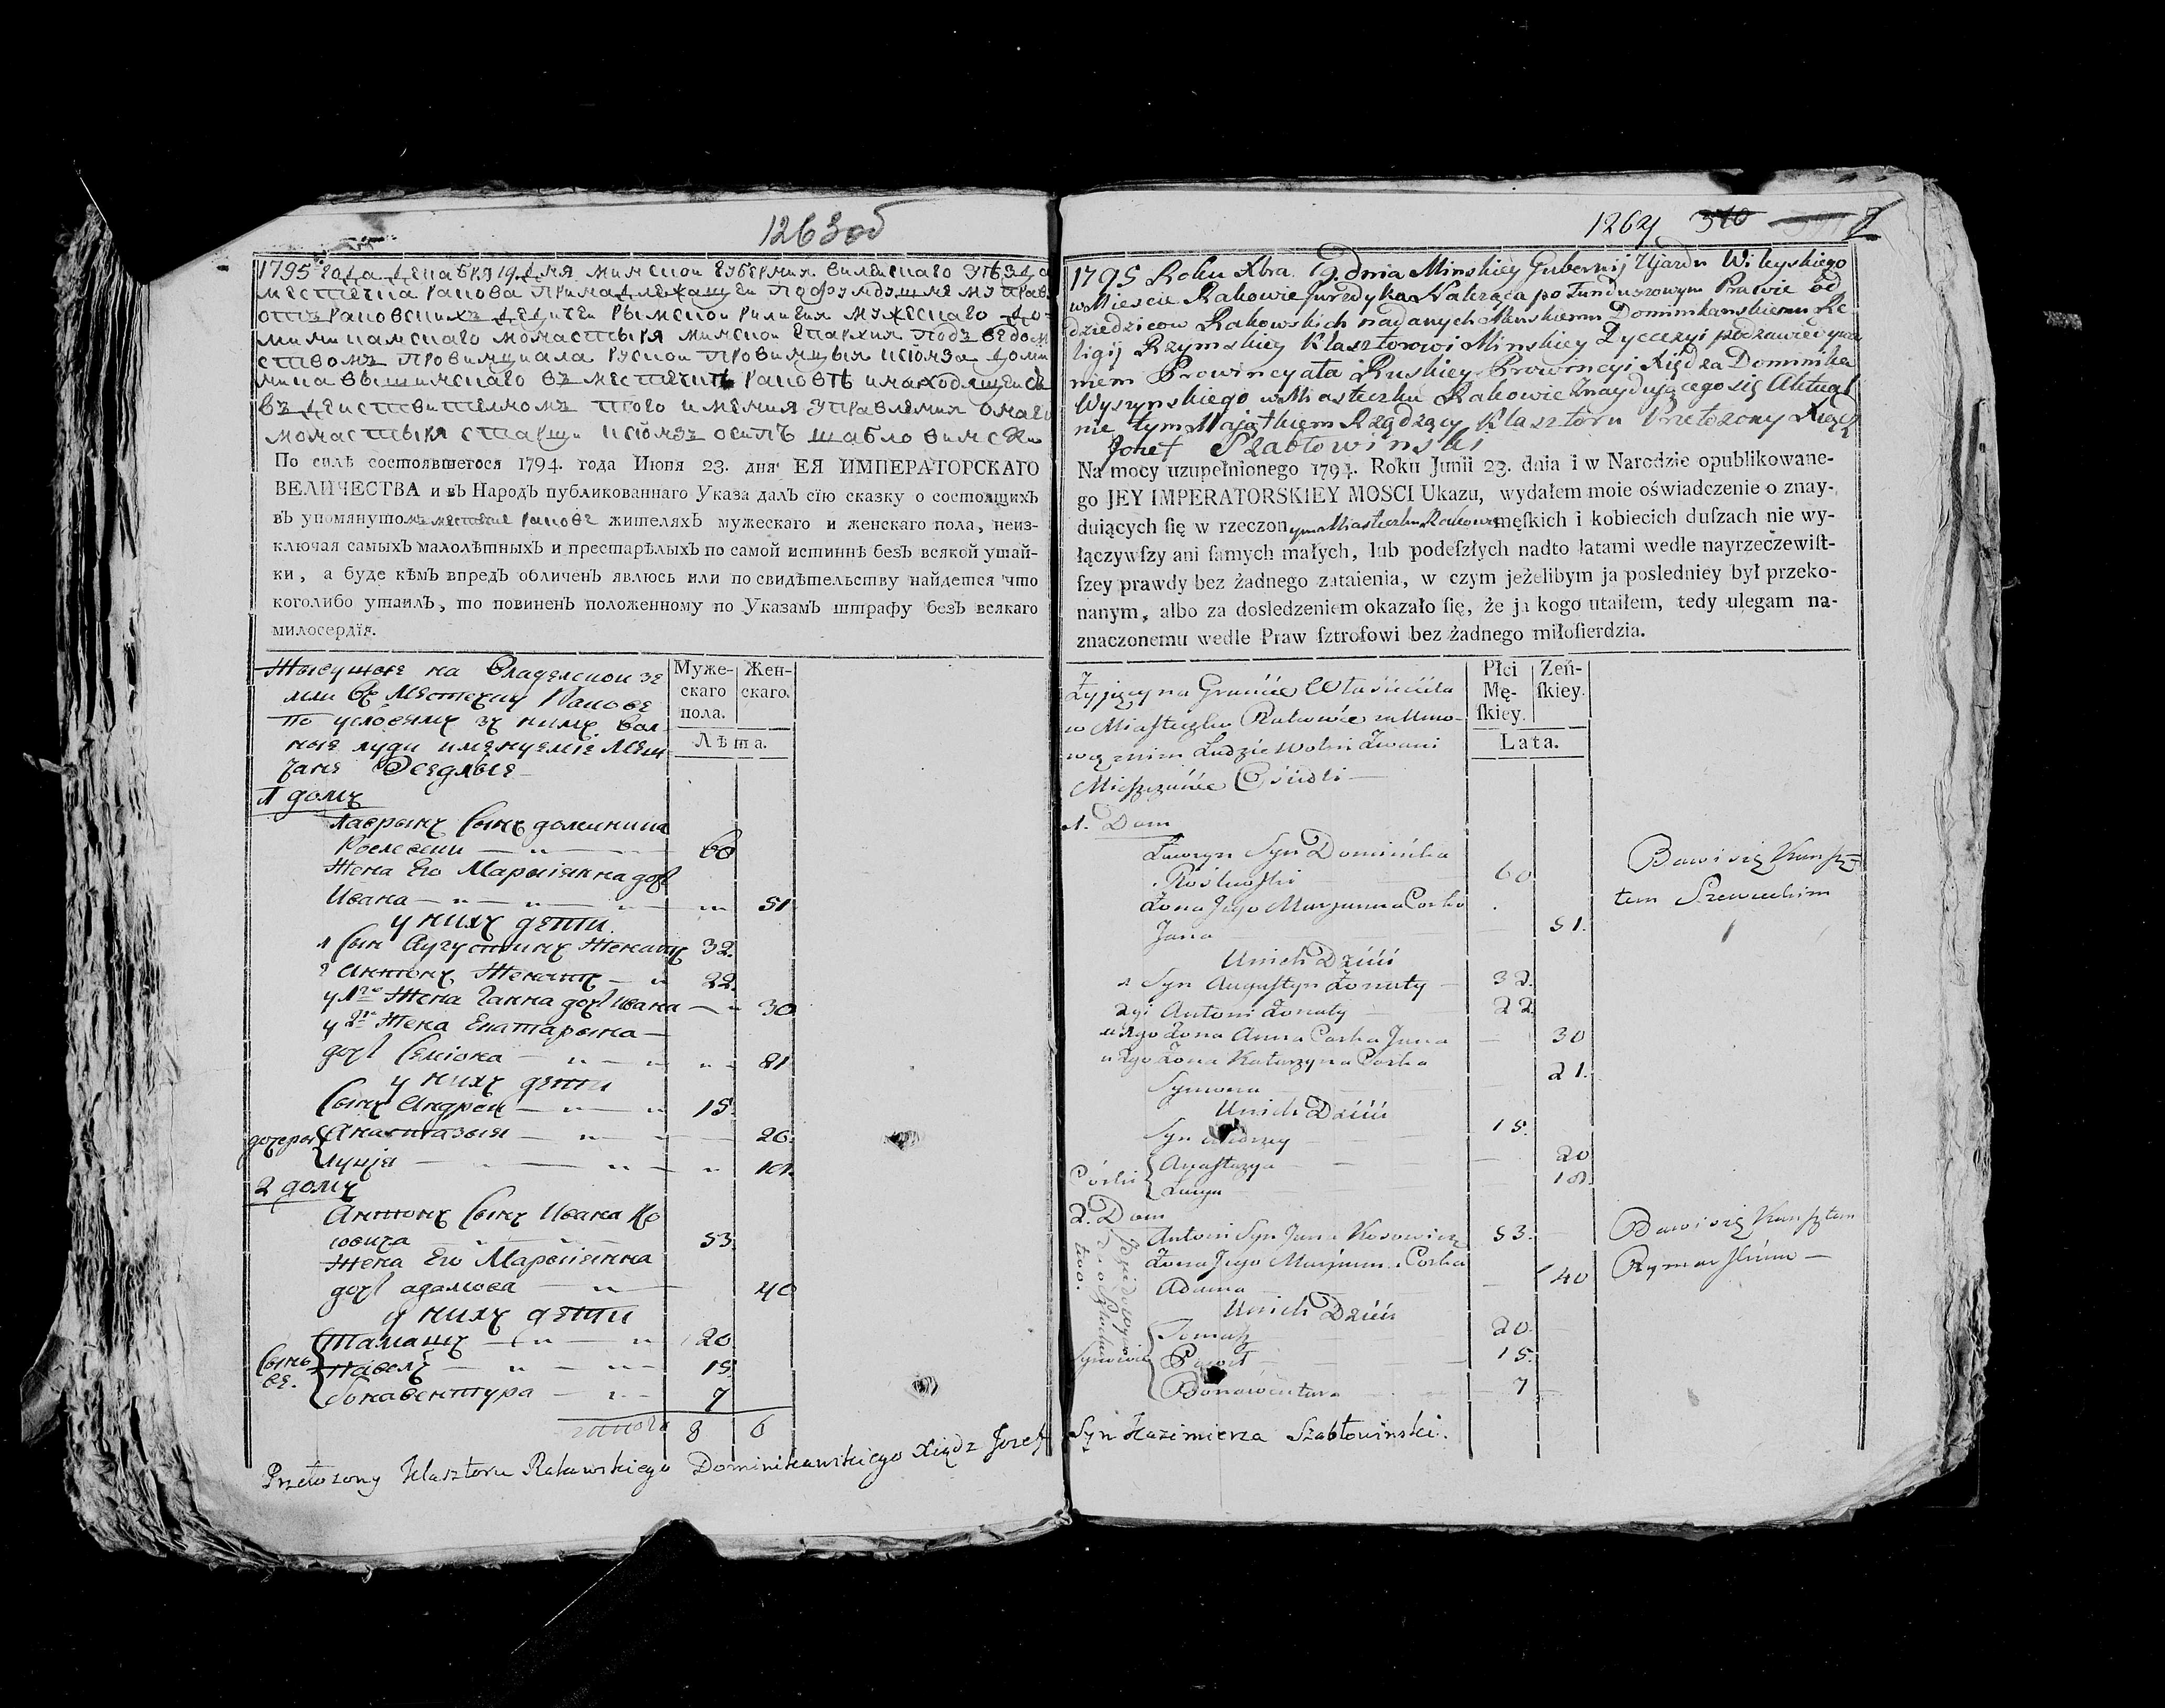 1263 об
1795 года Декабря 19 Дня минской Губернии вилейскаго уѣзда
местечка Ракова принадлежащей по фундушнему праву
отъ Раковскихъ Дедичей Рымской Рилигия мужескаго до-
миниканскаго монастыря минской Епархия подъ ведом
ствомъ провинцыала Руской провинцыя ксіонза доми
ника вышинскаго въ местечкѣ Раковѣ и находящейся
въ действителномъ того имения управления онаго
монастыря старши ксіонзъ осипъ шабловински
По силѣ состоявшегося 1794. года Июня 23. дня ЕЯ ИМПЕРАТОРСКАГО
ВЕЛИЧЕСТВА и въ Народъ публикованнаго Указа далъ сїю сказку о состоящихъ
въ упомянутомъ местечке Ракове жителяхъ мужескаго и женскаго пола, неиз-
ключая самыхъ малолѣтныхъ и престарѣлыхъ по самой истиннѣ безъ всякой утай-
ки, а буде кѣмъ впредъ обличенъ явлюсь или по свидѣтельству найдется что
коголибо утаилъ, то повиненъ положенному по Указамъ штрафу безъ всякаго
милосердїя.
Муже-
скаго
пола.
Жен-
скаго.
Лѣта.
Жывущые на Владелской зе
мли в Местечку Ракове
по условіямъ зъ нимъ вол
ные люди именуеміе Мещ
чане Оседлые
1 домъ
Лаврынъ Сынъ доминика
60
Жена Его Марыянна доч
Ивана 51
у нихъ дети
1 Сын Аугустынъ Женатъ 32.
2 Антонъ Женатъ 22
у 1го Жена Ганна доч Ивана 30
у 2го Жена Екатарына
доч Семіона 81
у нихъ дети
Сынъ Андрей 15.
дочеры Анастазыя 20.
Луція
2 домъ
Антонъ Сынъ Ивана Ко
совича 53.
Жена Его Марыянна
доч адамова 40
у нихъ дети
Сыно Тамашъ 20.
ве. Павелъ 15.
Бонавентура 7
итого 8 6
Przełożony Klasztoru Rakowskiego Dominikanskiego Xiądz Jozef
1264 370
1795 Roku Xbra. 19. dnia Minskiey Gubernij Ujazdu Wileyskiego
w Miescie Rakowie Jurzdyka Należąca po Funduszowym Prawie od
dziedzicow Rakowskich nadanych Minskiemu Dominikanskiemu Re
ligij Rzymskiey Klasztorowi Minskiey Dyecezyi pod zawiadywa
niem Prowincyała Ruskiey Prowincyi Xiędza Dominika
Wyszynskiego w Miasteczku Rakowie Znaydującego się Aktual
nie tym Majątkiem Rządzący Klasztoru Przełożony Xiądz
Jozef Szabłowinski
Na mocy uzupełnionego 1794. Roku Junii 23. dnia i w Narodzie opublikowane-
go JEY IMPERATORSKIEY MOSCI Ukazu, wydałem moie oświadczenie o znay-
duiących ſię w rzeczonym Miasteczku Rakowie męſkich i kobiecich duſzach nie wy-
łączywſzy ani ſamych małych, lub podeſzłych nadto latami wedle nayrzeczewiſt-
ſzey prawdy bez żadnego zataienia, w czym jeżelibym ja posledniey był przeko-
nanym, albo za dosledzeniem okazało ſię, że ja kogo utaiłem, tedy ulegam na-
znaczonemu wedle Praw ſztrofowi bez żadnego miłoſierdzia.
Płci
Mę-
ſkiey.
Żeń-
ſkiey.
Lata.
Żyjący na Gruncie Własciciela
w Miasteczku Rakowie za Umo-
wą z nim Ludzie Wolni Zwani
Mieszczanie Osiedli
1. Dom
Ławryn Syn Dominika
60
Żona Jego Maryanna Corka
Jana 51.
U nich Dzieci
1 Syn Augustyn Żonaty 32.
2gi Antoni Żonaty 22.
u 1go Żona Anna Corka Jana 30
u 2go Żona Katarzyna Corka
Symona 21.
U nich Dzieci
Syn Andrzey 15.
Córki Anastazya 20
Łucya 18.
Bawi się Kunszt
tem Szewieckim
2. Dom
Antoni Syn Jana Kosowicz 53.
Żona Jego Maryann. Corka
Adama 40
U nich Dzieci
Tomasz 20.
Synowie Paweł 15.
Bonawentura 7
Bawi się Kunsztem
Rymarskim
Syn Kazimierza Szabłowinski.